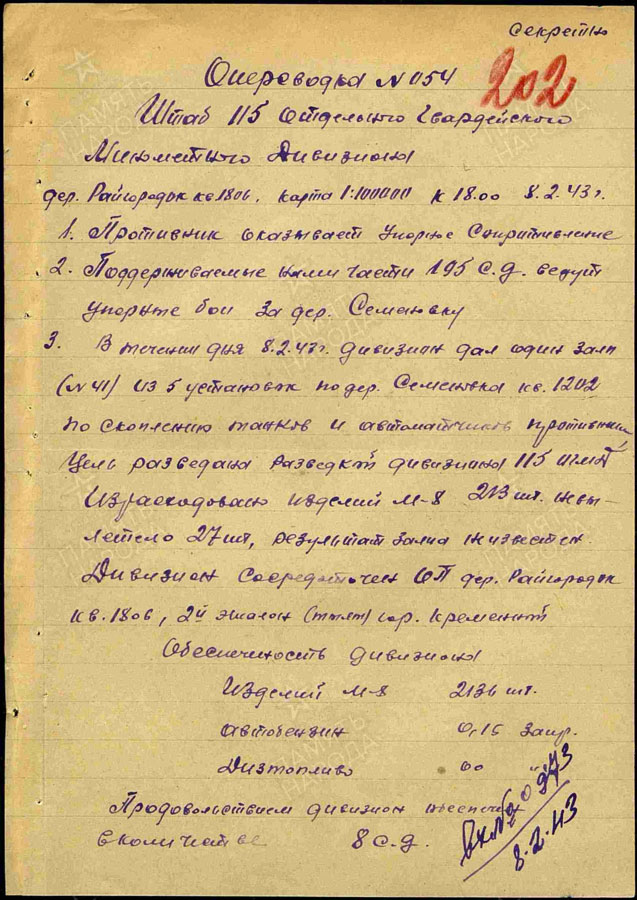 Секретно
Оперсводка № 054
202
Штаб 115 Отдельного Гвардейского
Минометного Дивизиона
дер. Райгородок кв 1806, карта 1:100000 к 18.00 8.2.43 г.
1. Противник оказывает упорное Сопротивление
2. Поддерживаемые нами части 195 С.Д. ведут
упорные бои за дер. Семеновку
3. В течении дня 8.2.43 г. дивизион дал один залп
(№ 41) из 5 установок по дер. Семеновка кв. 1202
по скоплению танков и автоматчиков противника
Цель разведана разведкой дивизиона 115
Израсходовано изделий М-8 213 шт. невы-
летело 27 шт, результат залпа неизвестен.
Дивизион сосредоточен ОП дер. Райгородок
кв. 1806, 2й эшалон гор. Кременной
Обеспеченость дивизиона
Изделий М-8 2136 шт.
автобензин 0,15 запр.
Дизтопливо 00 "
Продовольствием дивизион обеспечен
в количестве 8 С.Д.
8.2.43
ПАМЯТЬ НАРОДА